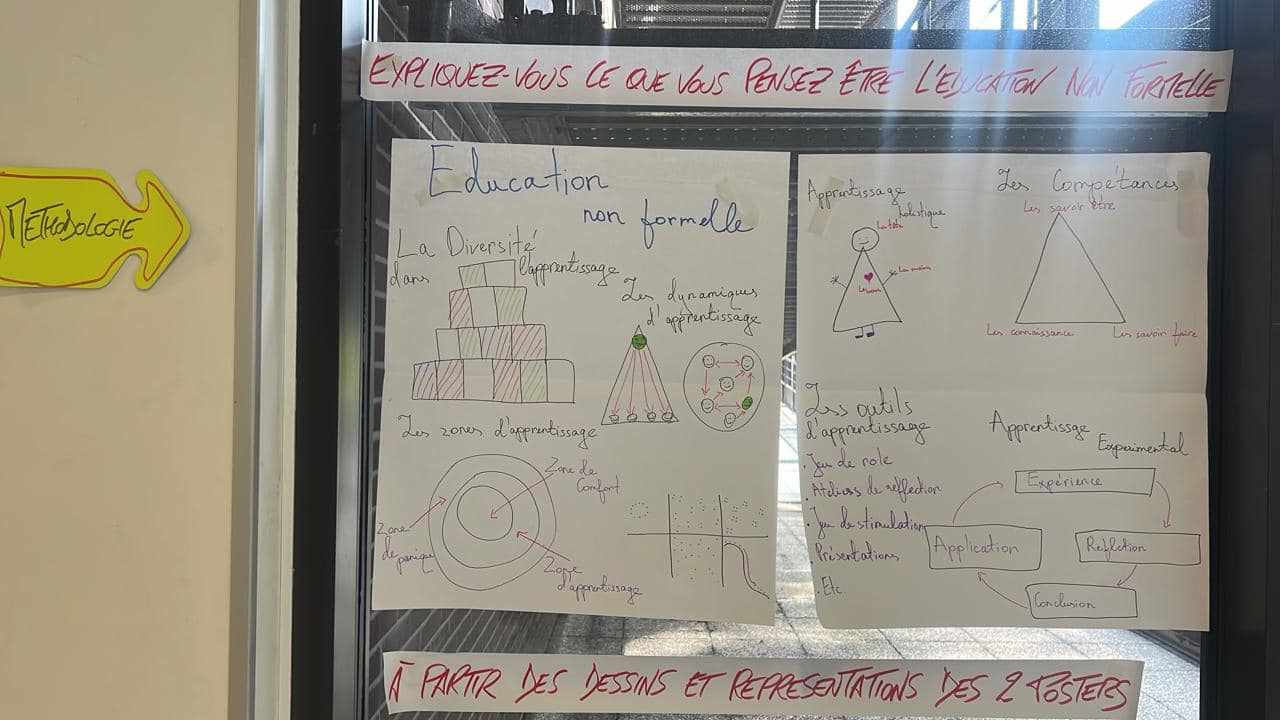 EXPLIQUEZ-VOUS CE QUE VOUS PENSEZ ÊTRE L'EDUCATION NON FORMELLE
METHODOLOGIE
Education
non formelle
La Diversité
dans l'apprentissage
Les dynamiques
d'apprentissage
Les zones d'apprentissage
Zone de
Comfort
Zone
de
panique
Zone
d'apprentissage
Apprentissage
holistique
La tête
Les mains
Le coeur
Les Compétances
Les savoir être
Les connaissance
Les savoir faire
Les outils
d'apprentissage
. Jeu de role
. Ateliers de reflection
. Jeu de stimulation
. Présentations
. Etc.
Apprentissge
Experimental
Expérience
Reflction
Conclusion
Application
À PARTIR DES DESSINS ET REPRESENTATIONS DES 2 POSTERS